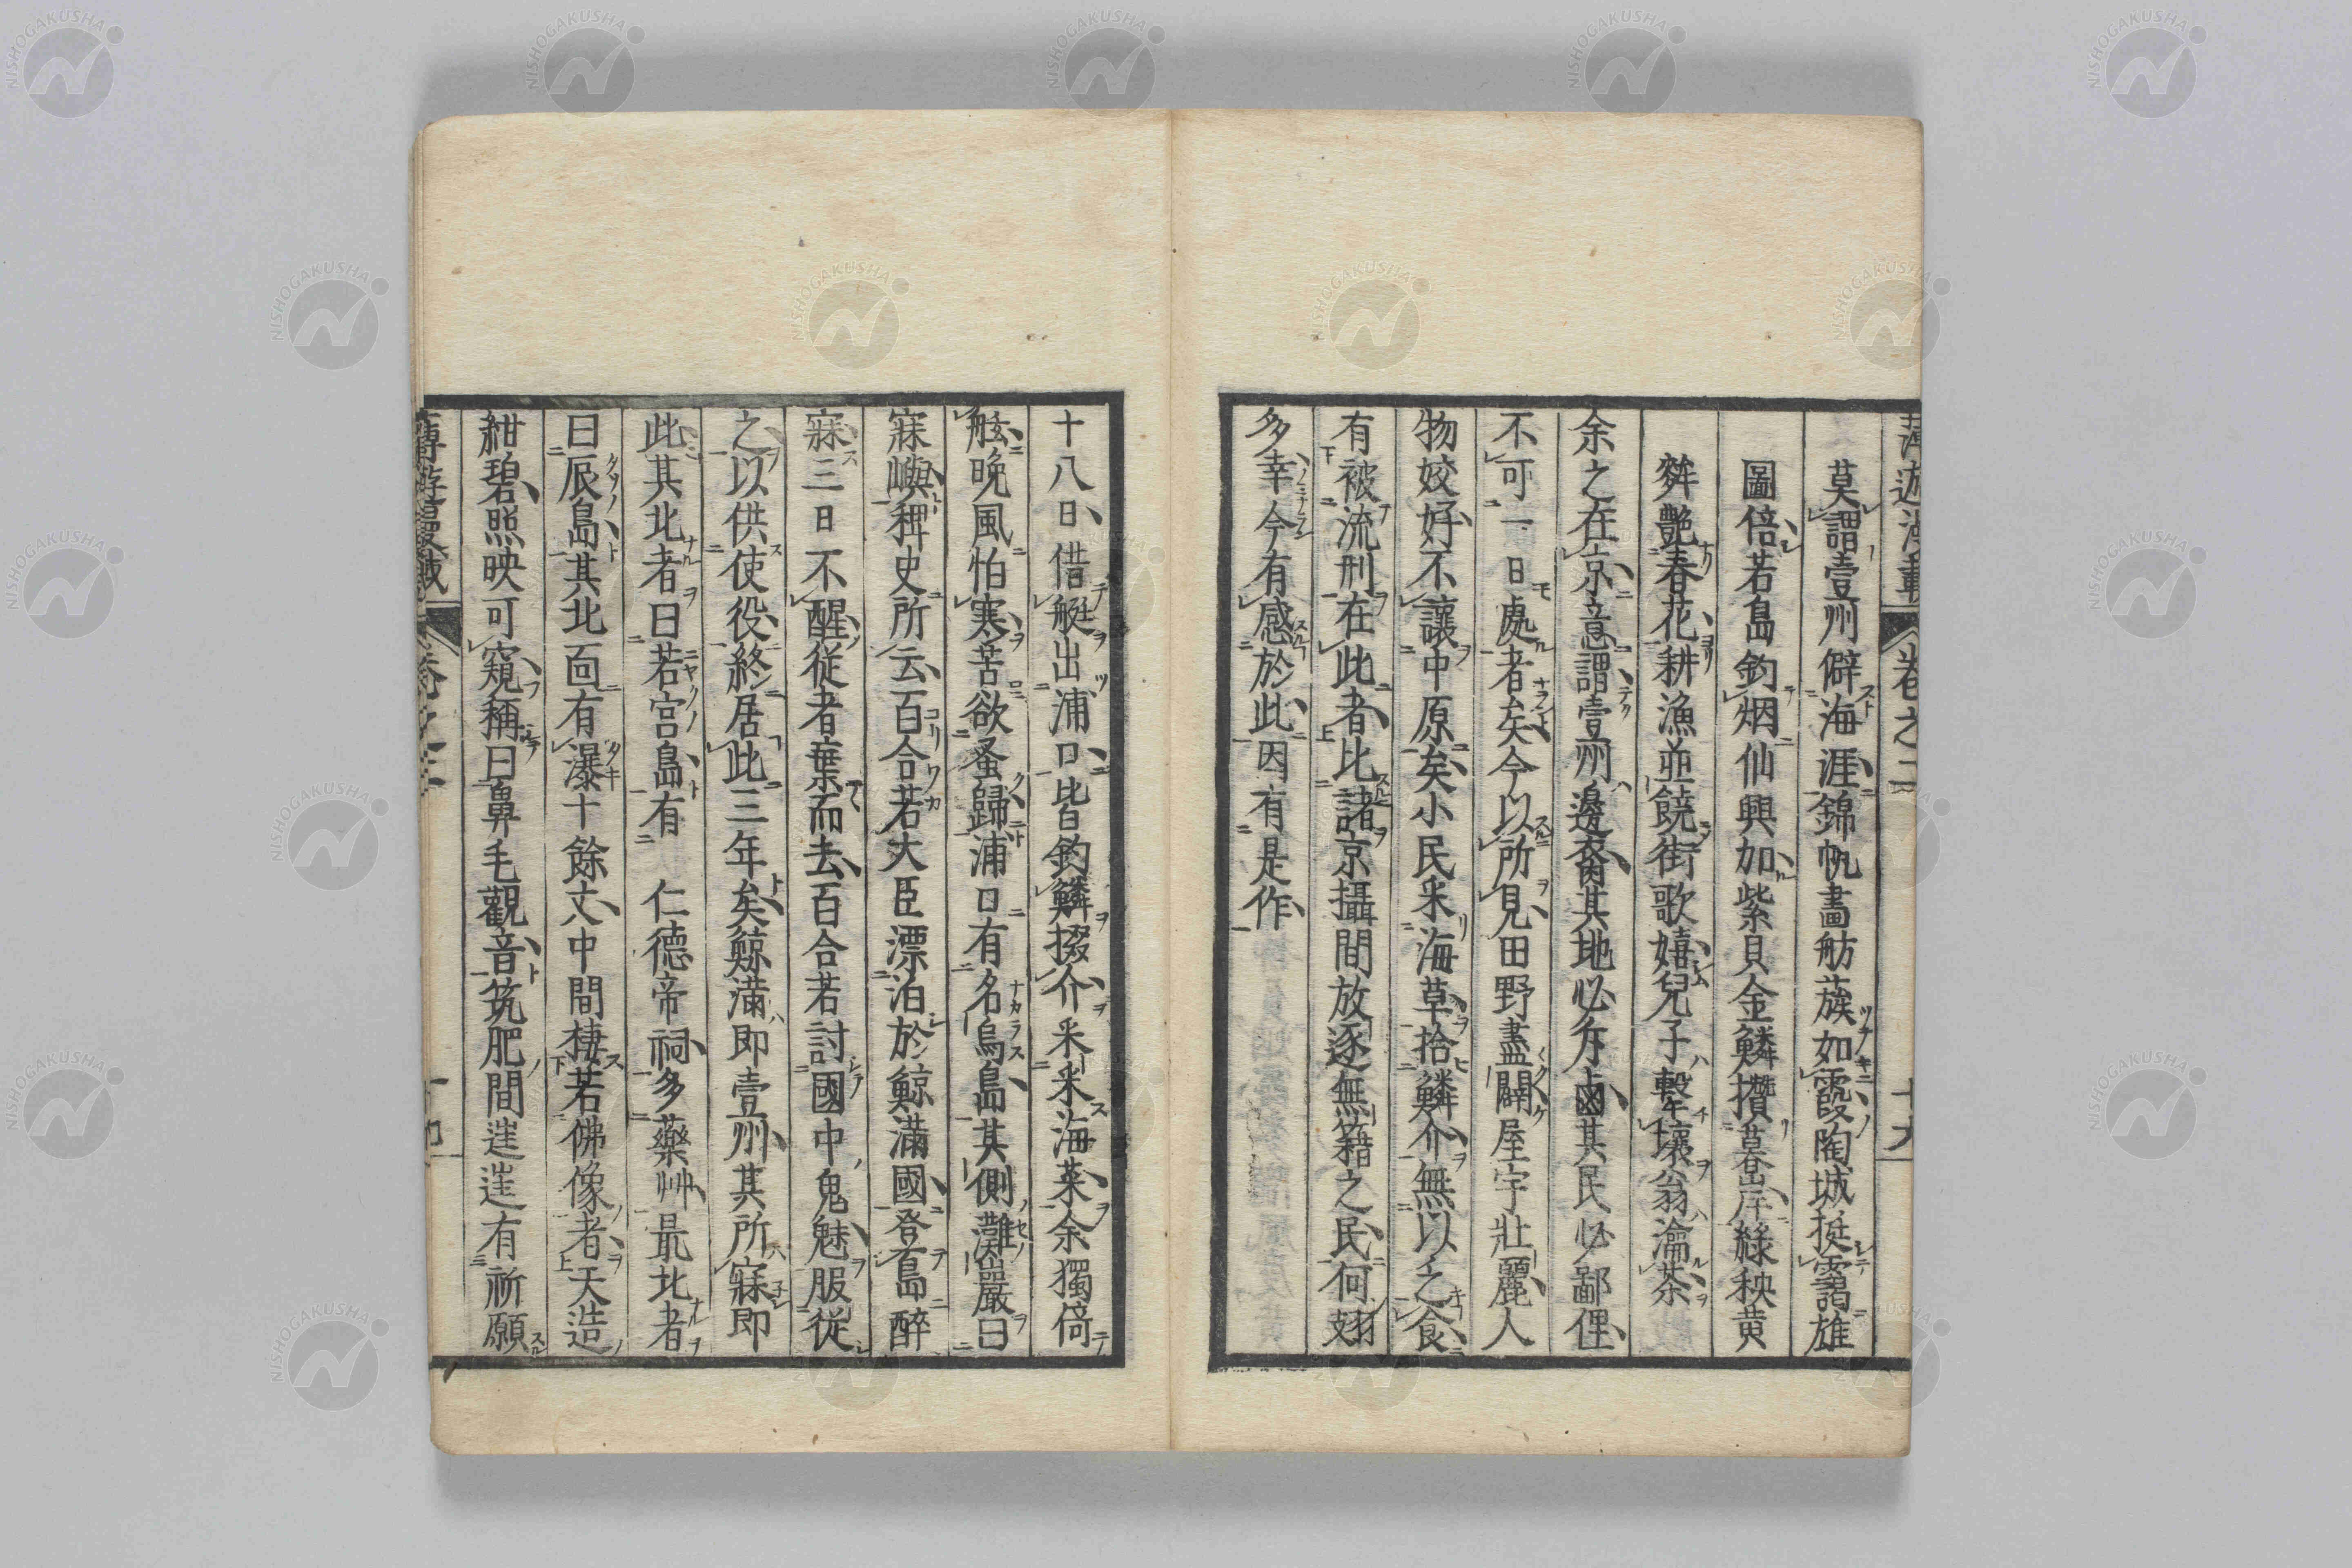 莫謂壹州僻海涯錦帆畵舫蔟如霞陶城挺靄雄
圖倍若島釣烟仙興加紫貝金鱗攢暮岸綠秧黄
麰艶春花耕漁並饒街歌嬉兒子擊壤翁瀹茶
余之在京意謂壹州邊裔其地必斥鹵其民必鄙俚
不可一日處者矣今以所見田野盡闢屋宇壯麗人
物姣好不讓中原矣小民采海草拾鱗介無以乏食
有被流刑在此者比諸京攝間放逐無籍之民何翅
多幸今有感於此因有是作
十八日借艇出浦口皆釣鱗掇介釆釆海菜余獨倚
舷晚風怕寒苦欲蚤歸浦口有名烏島其側灘巖曰
寐嶼稗史所云百合若大臣漂泊於鯨滿國登島醉
寐三日不醒從者棄而去百合若討國中鬼魅服從
之以供使役終居此三年矣鯨滿即壹州其所寐即
此其北者曰若宮島有 仁德帝祠多藥艸最北者
曰辰島其北面有瀑十餘丈中間棲若佛像者天造
紺碧照映可窺稱曰鼻毛觀音筑肥間𨓏𨓏有祈願
卷之二
十九
NISHOGAKUSHA